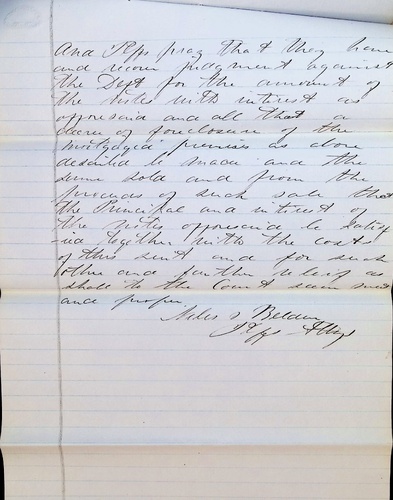 And Plffs pray that they have
and recover judgment against
the Deft for the amount of
the notes with interest as
aforesaid and all that a
decree of foreclosure of the
mortgaged premises as above
described be made and the
same sold and from the
proceeds of such sale that
the Principal and interest of
the notes aforesaid be satisf
-ied together with the costs
of this suit and for such
other and further relief as
shall to the Court seem meet
and proper
Plffs Attys